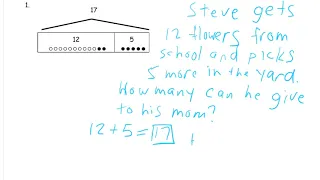 1.
17
12 5
Steve gets
12 flowers from
school and picks
5 more in the yard.
How many can he give
to his mom?
12 + 5 = 17